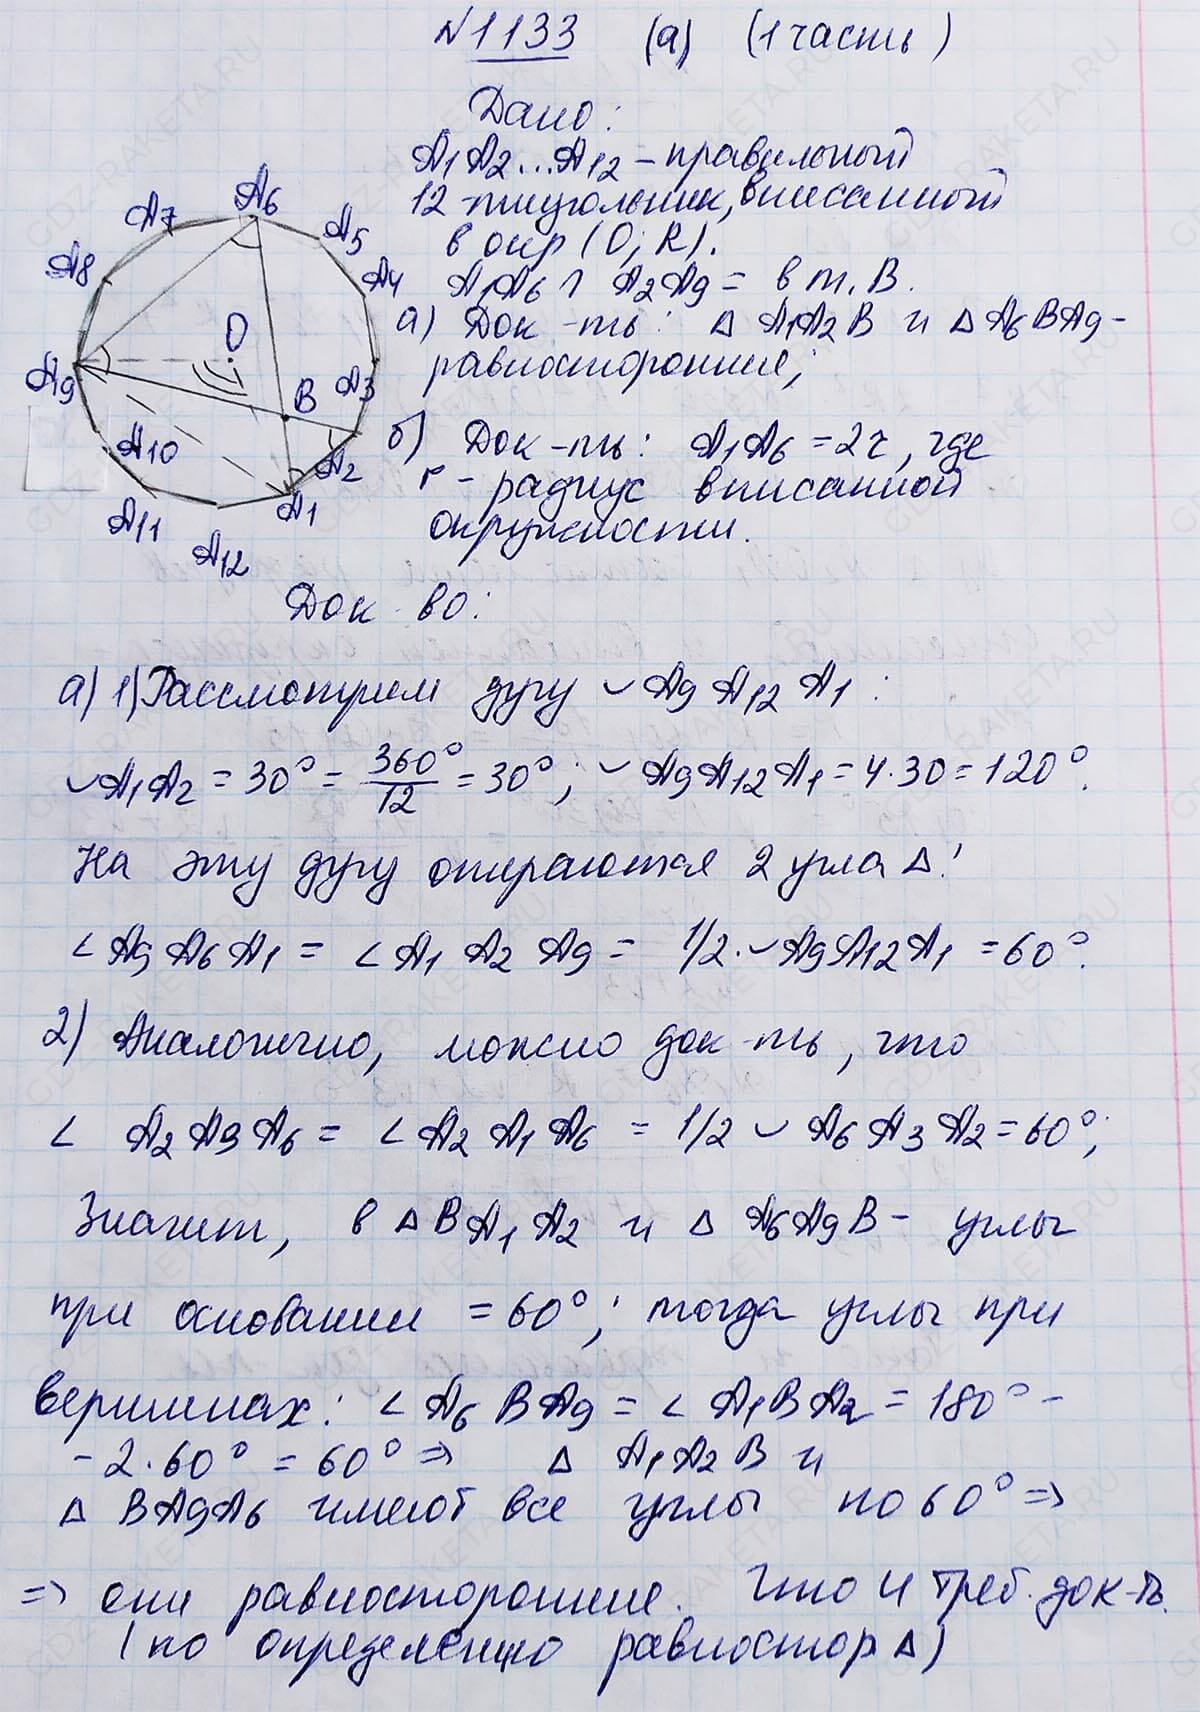 №1133 (а) (1 часть)
Дано:
A1A2...A12 – правильный
12-тиугольник, вписанный
в окр (O; R).
A1A6 ∩ A2A9 = в т. B.
а) Док-ть: Δ A1A2B и Δ A6BA9-
равносторонние;
б) Док-ть: A1A6 = 2r, где
r - радиус вписанной
окружности.
A6
A7
A5
A8
A4
O
A9
B
A3
A10
A2
A11
A1
A12
Док-во:
а) 1) Рассмотрим дугу ◡A9A12A1:
◡A1A2 = 30° = 360°/12 = 30°; ◡A9A12A1 = 4·30 = 120°.
На эту дугу опираются 2 угла Δ:
∠A9A6A1 = ∠A1A2A9 = 1/2·◡A9A12A1 = 60°.
2) Аналогично, можно док-ть, что
∠ A2A9A6 = ∠A2A1A6 = 1/2 ◡ A6A3A2 = 60°;
Значит, в ΔBA1A2 и Δ A6A9B – углы
при основании = 60°; тогда углы при
вершинах: ∠A6BA9 = ∠A1BA2 = 180° -
- 2·60° = 60° ⇒ Δ A1A2B и
Δ BA9A6 имеют все углы по 60° ⇒
⇒ они равносторонние. Что и треб. док-ть.
(по определению равностор Δ)
GDZ-RAKETA.RU